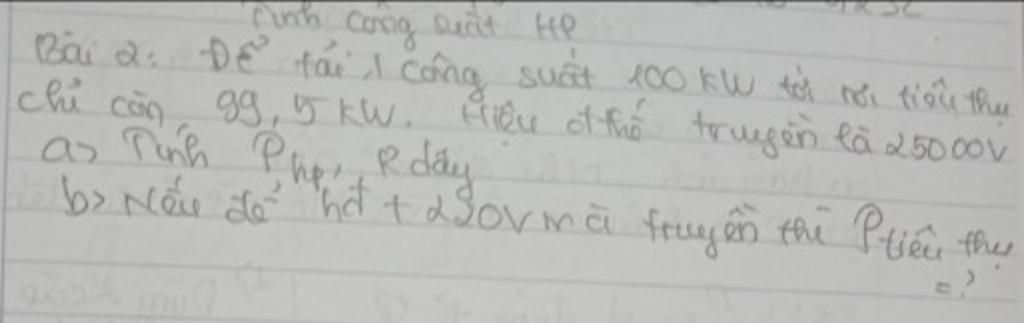 Tính công suất HP
Bài 2: Để tải 1 công suất 100 KW tới nơi tiêu thụ
chỉ còn 99,5 KW. Hiệu đ thế truyền là 25000V
a> Tính Php, R dây
b> Nếu để hđt 220V mà truyền thì P tiêu thụ
= ?